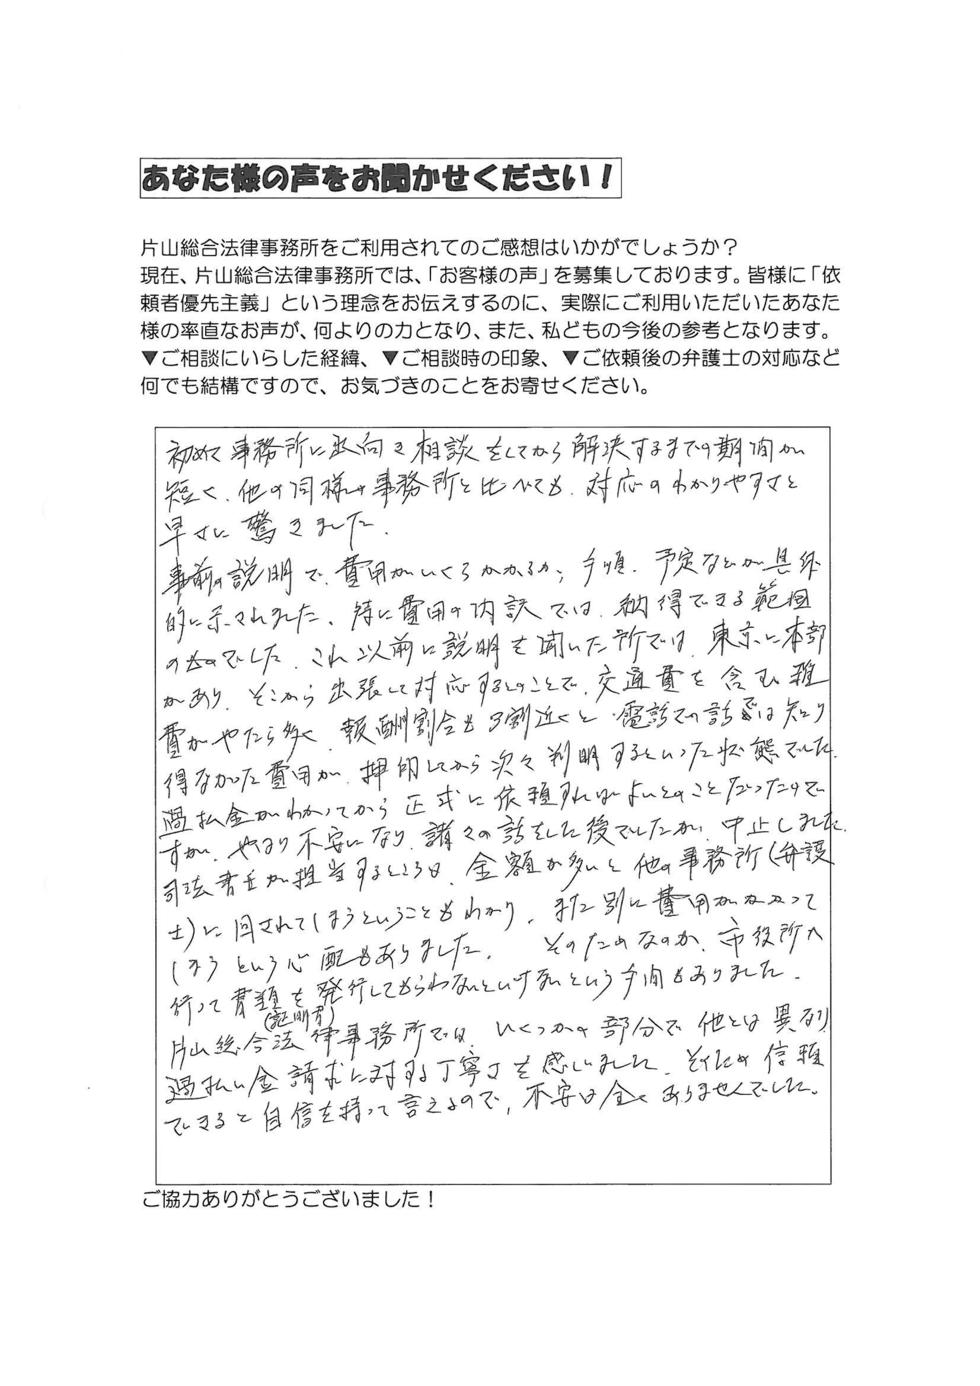 あなた様の声をお聞かせください！
片山総合法律事務所をご利用されてのご感想はいかがでしょうか？
現在、片山総合法律事務所では、「お客様の声」を募集しております。皆様に「依
頼者優先主義」という理念をお伝えするのに、実際にご利用いただいたあなた
様の率直なお声が、何よりの力となり、また、私どもの今後の参考となります。
▼ご相談にいらした経緯、▼ご相談時の印象、▼ご依頼後の弁護士の対応など
何でも結構ですので、お気づきのことをお寄せください。
初めて事務所に出向き相談をしてから解決するまでの期間が
短く、他の同様の事務所と比べても、対応のわかりやすさと
早さに驚きました。
事前の説明で、費用がいくらかかるか、手順、予定などが具体
的に示されました。特に費用の内訳では、納得できる範囲
のものでした。これ以前に説明を聞いた所では、東京に本部
があり、そこから出張して対応するとのことで、交通費を含む雑
費がやたら多く、報酬割合も3割近くと、電話での話では知り
得なかった費用が、押印してから次々判明するといった状態でした。
過払金がわかってから正式に依頼すればよいとのことだったので
すが、やはり不安になり、諸々の話をした後でしたが、中止しました。
司法書士が担当するところは、金額が多いと他の事務所（弁護
士）に回されてしまうということもわかり、また別に費用がかかって
しまうという心配もありました。 そのためなのか、市役所へ
行って書類を発行してもらわないといけないという手間もありました。
(証明書)
片山総合法律事務所では、いくつかの部分で他とは異なり
過払い金請求に対する丁寧さを感じました。そのため信頼
できると自信を持って言えるので、不安は全くありませんでした。
ご協力ありがとうございました！